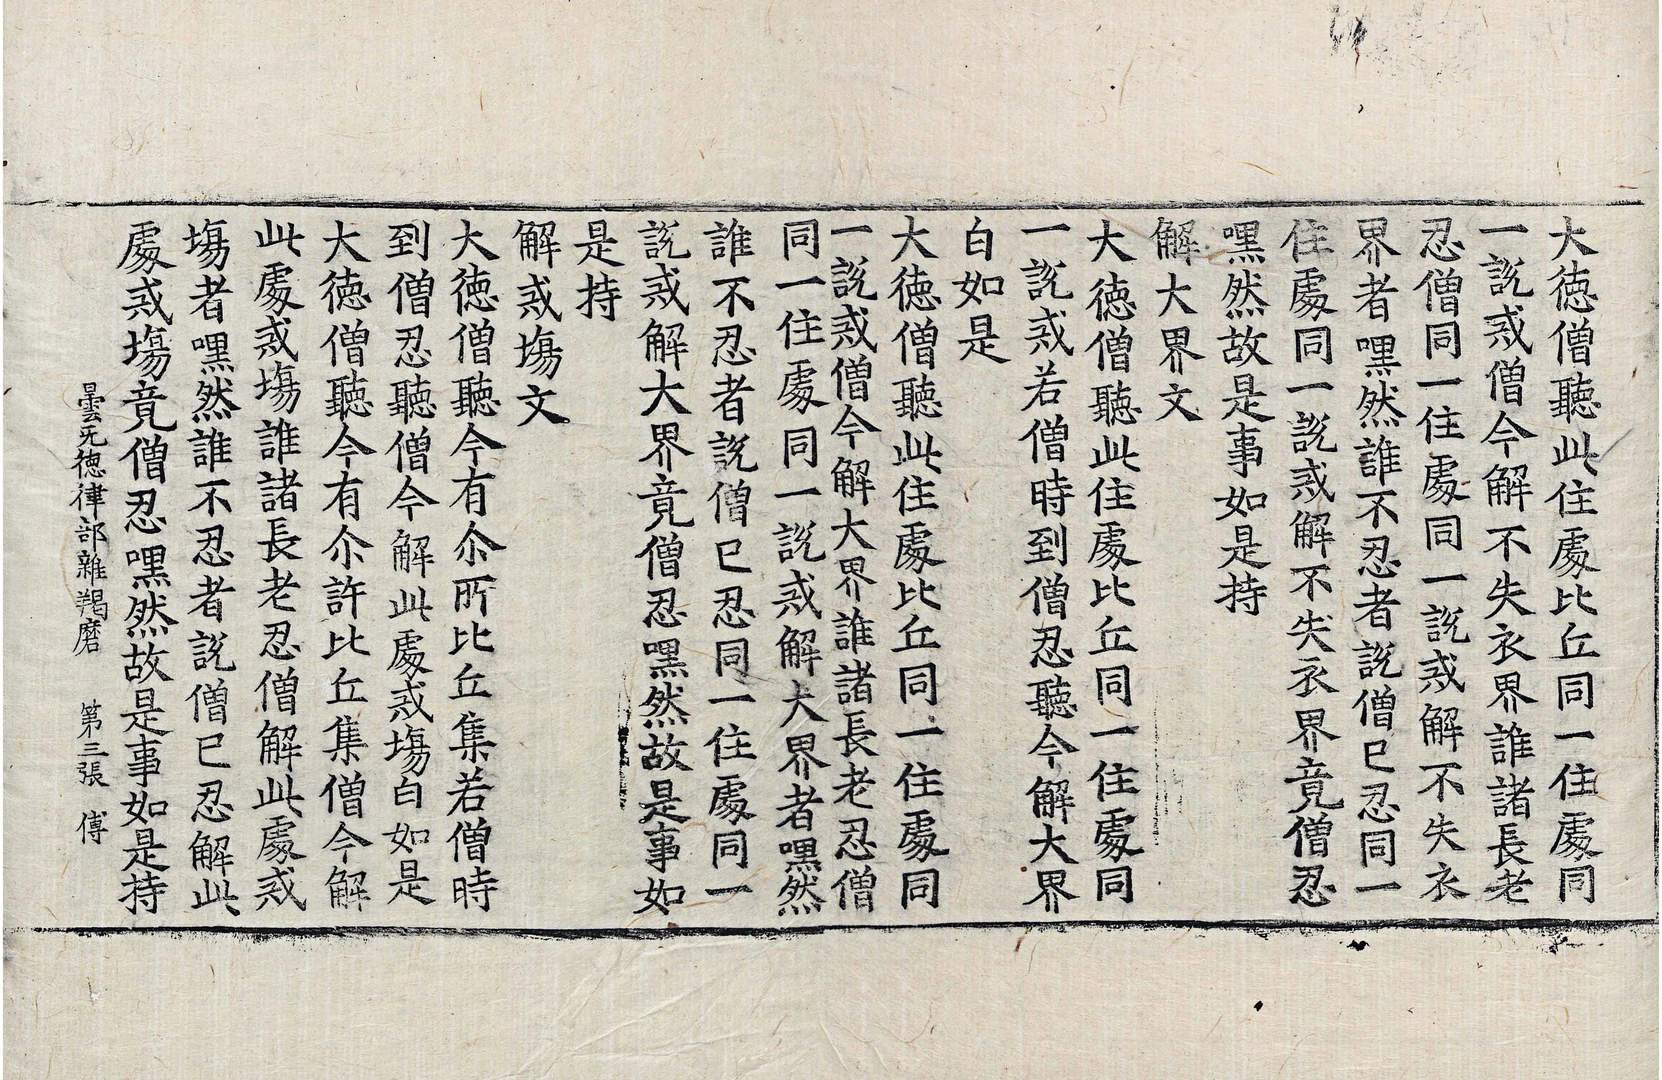 大德僧聽此住處比丘同一住處同
一說戒僧今解不失衣界誰諸長老
忍僧同一住處同一說戒解不失衣
界者嘿然誰不忍者說僧已忍同一
住處同一說戒解不失衣界竟僧忍
嘿然故是事如是持
解大界文
大德僧聽此住處比丘同一住處同
一說戒若僧時到僧忍聽今解大界
白如是
大德僧聽此住處比丘同一住處同
一說戒僧今解大界誰諸長老忍僧
同一住處同一說戒解大界者嘿然
誰不忍者說僧已忍同一住處同一
說戒解大界竟僧忍嘿然故是事如
是持
解戒場文
大德僧聽今有尒所比丘集若僧時
到僧忍聽僧今解此處戒場白如是
大德僧聽今有尒許比丘集僧今解
此處戒場誰諸長老忍僧解此處戒
場者嘿然誰不忍者說僧已忍解此
處戒場竟僧忍嘿然故是事如是持
曇无德律部雜羯磨 第三張 傅